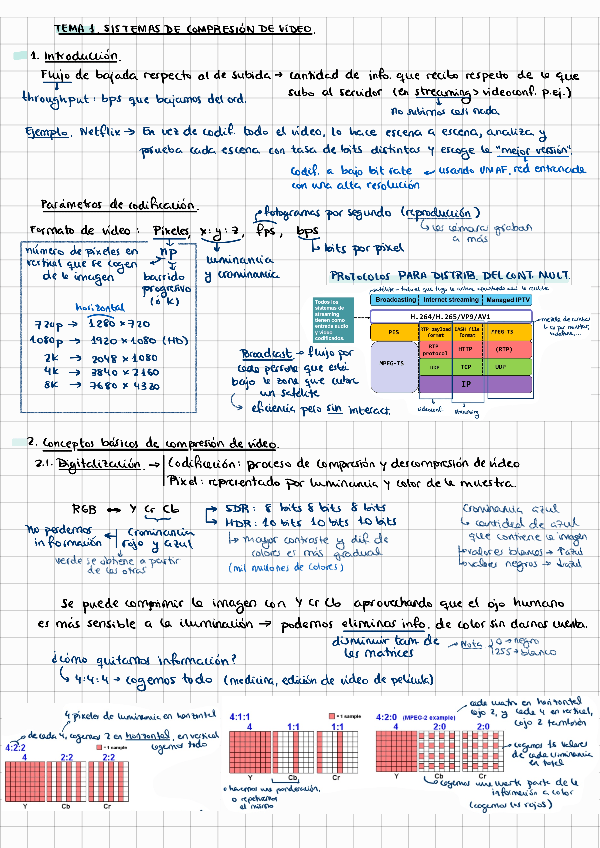 TEMA 1. SISTEMAS DE COMPRESIÓN DE VÍDEO.
1. Introducción.
Flujo de bajada respecto al de subida → cantidad de info. que recibo respecto de lo que
subo al servidor (en streaming > videoconf. p.ej.)
throughput: bps que bajamos del ord.
no subimos casi nada
Ejemplo. Netflix → En vez de codif. todo el vídeo, lo hace escena a escena, analiza y
prueba cada escena con tasa de bits distintas y escoge la "mejor versión".
codif. a bajo bit rate ← usando VMAF, red entrenada
con una alta resolución
Parámetros de codificación.
fotogramas por segundo (reproducción)
Formato de vídeo: Píxeles, x:y:z, fps, bps
las cámaras graban
a más
bits por píxel
número de píxeles en
vertical que se cogen
de la imagen
np
barrido
progresivo
(ó k)
luminancia
y crominancia
horizontal
720p → 1280 × 720
1080p → 1920 × 1080 (HD)
2K → 2048 × 1080
4K → 3840 × 2160
8K → 7680 × 4320
PROTOCOLOS PARA DISTRIB. DEL CONT. MULT.
Todos los
sistemas de
streaming
tienen como
entrada audio
y vídeo
codificados.
Broadcasting Internet streaming Managed IPTV
H.264/H.265/VP9/AV1
PES RTP payload format DASH file format MPEG-TS
MPEG-TS RTP protocol HTTP (RTP)
UDP TCP UDP
IP
videoconf. streaming
Broadcast → flujo por
cada persona que está
bajo la zona que cubre
un satélite
→ eficiencia pero sin interact.
2. Conceptos básicos de compresión de vídeo.
2.1. Digitalización → Codificación: proceso de compresión y descompresión de vídeo
Píxel: representado por luminancia y color de la muestra.
RGB ↔ Y Cr Cb
→ SDR: 8 bits 8 bits 8 bits
→ HDR: 10 bits 10 bits 10 bits
mayor contraste y dif de
colores es más gradual
(mil millones de colores)
No perdemos
información
Crominancia
rojo y azul
verde se obtiene a partir
de los otros
Crominancia azul
→ cantidad de azul
que contiene la imagen
→ valores blancos → ↑ azul
→ valores negros → ↓ azul
Se puede comprimir la imagen con Y Cr Cb aprovechando que el ojo humano
es más sensible a la iluminación → podemos eliminar info. de color sin darnos cuenta.
disminuir tam de
las matrices
Nota 0 → negro
255 → blanco
¿Cómo quitamos información?
→ 4:4:4 → cogemos todo (medicina, edición de vídeo de película)
4 píxeles de luminancia en horizontal
de cada 4, cogemos 2 en horizontal, en vertical
cogemos todo
4:2:2
= 1 sample
4 2:2 2:2
Y Cb Cr
4:1:1
= 1 sample
4 1:1 1:1
Y Cb Cr
o hacemos una ponderación,
o repetimos
el mismo
4:2:0 (MPEG-2 example)
4 2:0 2:0
Y Cb Cr
cada cuatro en horizontal
cojo 2, y cada 4 en vertical,
cojo 2 también
cogemos los valores
de cada luminancia
en total
cogemos una cuarta parte de la
información a color
(cogemos los rojos)